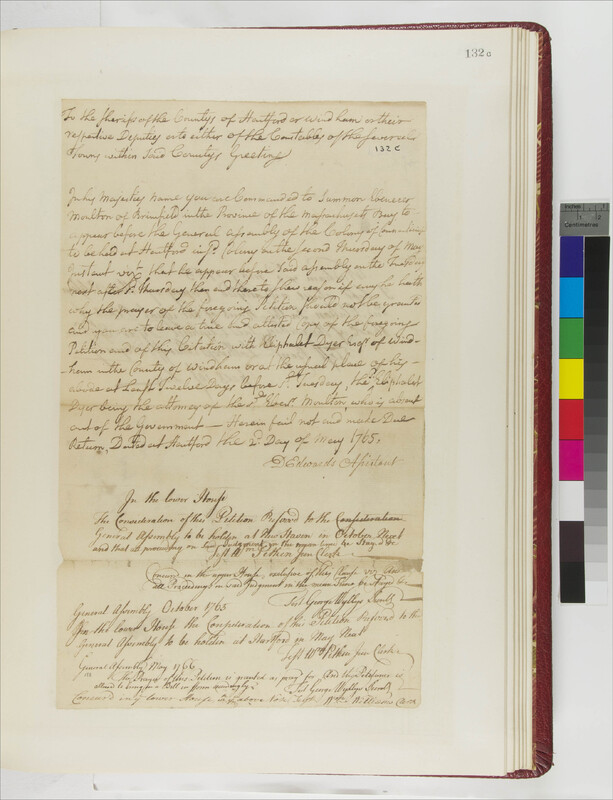 132 a
To the Sheriffs of the Countys of Hartford or Windham or their
respective Deputies or to either of the Constables of the several
Towns within said Countys Greeting
132 C
In his Majesties name you are Commanded to Summon Ebenezer
Moulton of Brimfield in the Province of the Massachusetts Bay to
appear before the General Assembly of the Colony of
to be held at Hartford in sd. Colony on the Second Thursday of May
Instant viz that he appear before said Assembly on the Tuesday
next after sd. Thursday then and there to shew reason if any he hath
why the prayer of the foregoing Petition should not be granted
and you are to leave a true and attested Copy of the foregoing
Petition and of this Citation with Eliphalet Dyer Esqr. of Wind-
-ham in the County of Windham or at the usual place of his
abode at Least Twelve Days before sd. Tuesday, the sd. Eliphalet
Dyer being the attorney of the sd. Ebenr. Moulton, who is absent
out of the Government — Hereof fail not and make Due
Return, Dated at Hartford the 2d. Day of May 1765.
D Edwards Assistant
In the lower House
The Consideration of this Petition Refered to the
General Assembly to be holden at New Haven in October Next
and that all proceeding on Judgment in the mean time be Stayd &c
Test Wm. Pitkin Junr Clerk
Concurd in the upper House, exclusive of this Clause viz
Proceedings on said Judgement in the mean Time be Stayd &c
Test George Wyllys Secrety
General Assembly October 1765
In the lower House the Consideration of this Petition Refered to the
General Assembly to be holden at Hartford in May Next
Test Wm Pitkin Junr Clerk
General Assembly May 1766
The Prayer of this Petition is granted as pray'd for And the Petitioner is
allowed to bring in a Bill in form accordingly
Test George Wyllys Secrety
Concurd in ye lower House
Test Wm. Williams Clerk